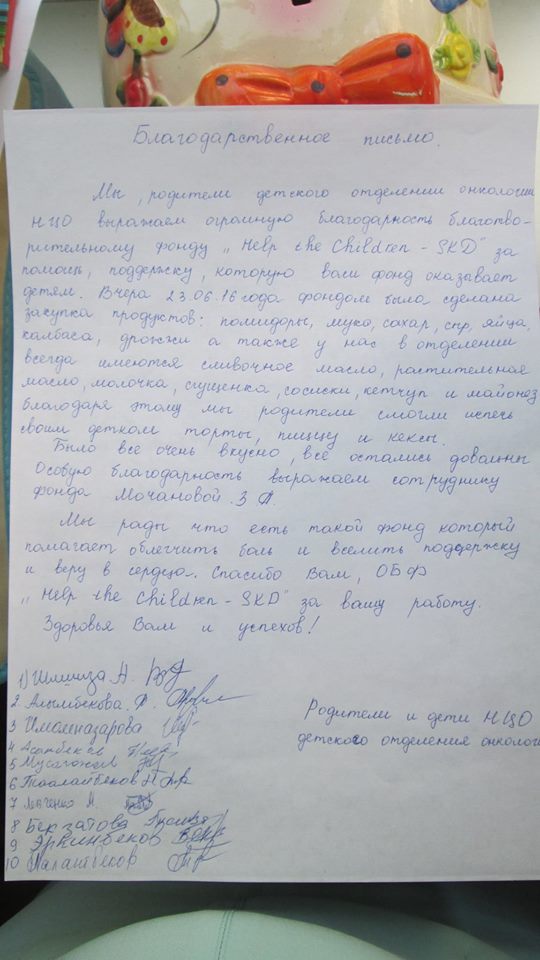 Благодарственное письмо.
Мы, родители детского отделении онкологии
НЦО выражаем огромную благодарность благотво-
рительному фонду „Help the Children - SKD" за
помощь, поддержку, которую ваш фонд оказывает
детям. Вчера 23.06.16 года фондом была сделана
закупка продуктов: помидоры, мука, сахар, спр, яйца,
калбаса, дрожжи а также у нас в отделении
всегда имеются сливочное масло, растительная
масло, молочка, сгущенка, сосиски, кетчуп и майонез
благодаря этому мы родители смогли испечь
своим деткам торты, пиццу и кексы.
Было все очень вкусно, все остались довольны
Особую благодарность выражаем сотруднику
фонда Мочановой З А.
Мы рады что есть такой фонд который
помагает облегчить боль и вселить поддержку
и веру в сердца. Спасибо Вам, ОБФ
„Help the Children - SKD" за вашу работу.
Здоровья Вам и успехов!
1) А.
2 Алымбекова. Ф.
3 Имомназарова
4
5
6 Таалайбеков
7 Левченко М.
8 Бекзатова
9 Эркинбеков
10 Талантбеков
Родители и дети НЦО
детского отделения онкологи